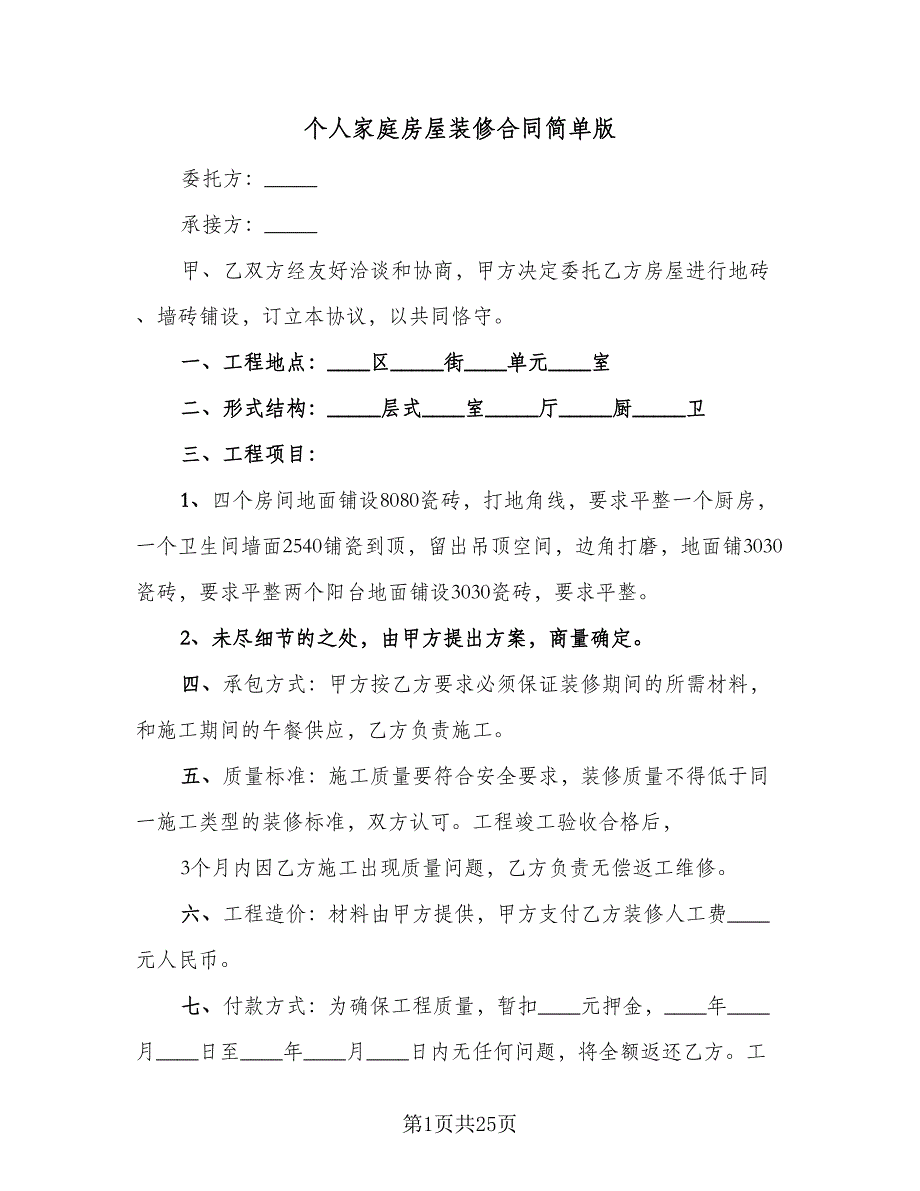 个人家庭房屋装修合同简单版
委托方：_____
承接方：_____
甲、乙双方经友好洽谈和协商，甲方决定委托乙方房屋进行地砖
、墙砖铺设，订立本协议，以共同恪守。
一、工程地点：____区_____街____单元____室
二、形式结构：_____层式____室_____厅_____厨_____卫
三、工程项目：
1、四个房间地面铺设8080瓷砖，打地角线，要求平整一个厨房，
一个卫生间墙面2540铺瓷到顶，留出吊顶空间，边角打磨，地面铺3030
瓷砖，要求平整两个阳台地面铺设3030瓷砖，要求平整。
2、未尽细节的之处，由甲方提出方案，商量确定。
四、承包方式：甲方按乙方要求必须保证装修期间的所需材料，
和施工期间的午餐供应，乙方负责施工。
五、质量标准：施工质量要符合安全要求，装修质量不得低于同
一施工类型的装修标准，双方认可。工程竣工验收合格后，
3个月内因乙方施工出现质量问题，乙方负责无偿返工维修。
六、工程造价：材料由甲方提供，甲方支付乙方装修人工费____
元人民币。
七、付款方式：为确保工程质量，暂扣____元押金，____年____
月____日至____年____月____日内无任何问题，将全额返还乙方。工
第1页共25页